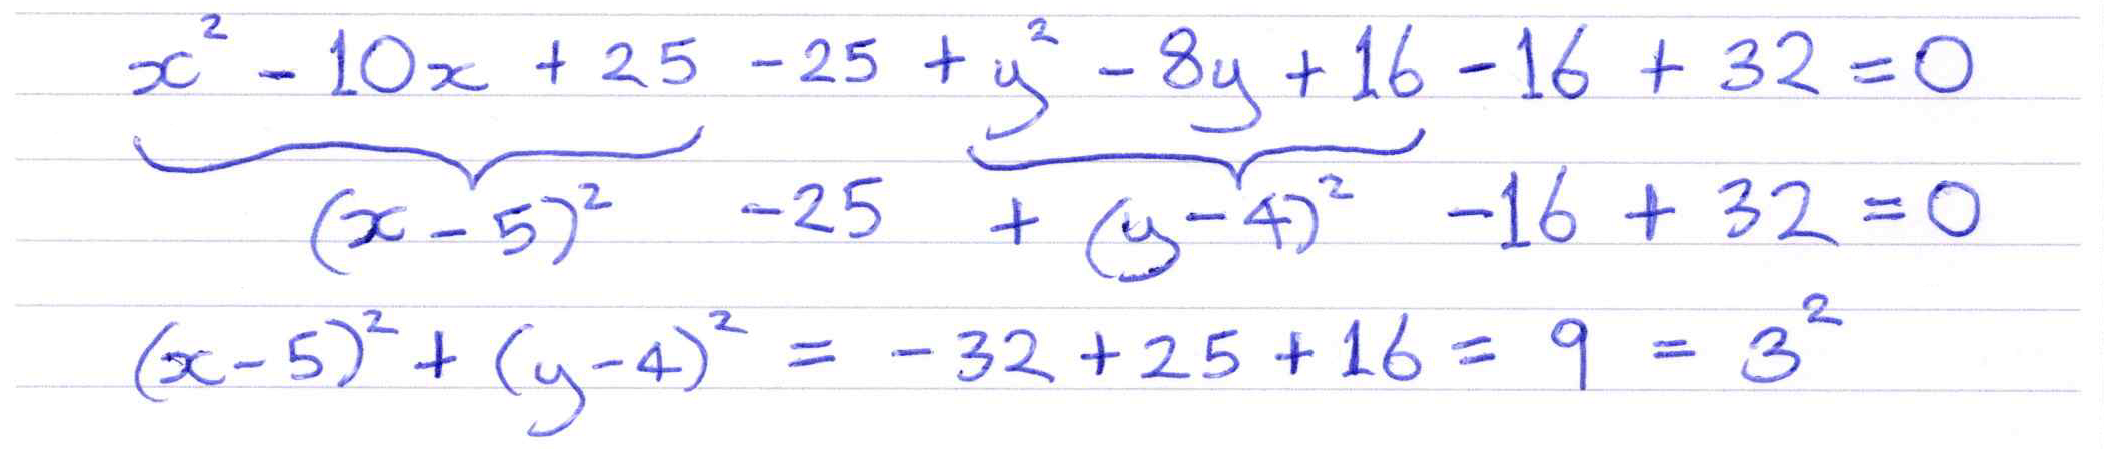 x² - 10x + 25 - 25 + y² - 8y + 16 - 16 + 32 = 0
(x - 5)² - 25 + (y - 4)² - 16 + 32 = 0
(x - 5)² + (y - 4)² = - 32 + 25 + 16 = 9 = 3²